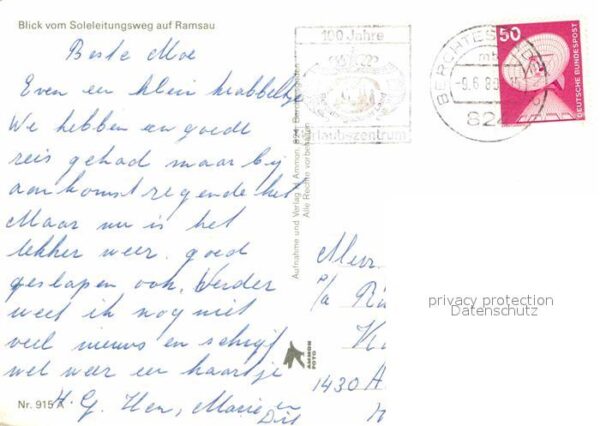 Blick vom Soleleitungsweg auf Ramsau
Beste Moe
Even een klein krabbeltje
We hebben een goede
reis gehad maar bij
aankomst regende het
Maar nu is het
lekker weer. goed
geslapen ook. Verder
weet ik nog niet
veel nieuws en schrijf
wel weer een kaartje
H. G. Marie en
Nr. 915 A
Aufnahme und Verlag H. Ammon, 824 Berchtesgaden
Alle Rechte vorbehalten
AMMON
FOTO
100 Jahre
1882
Urlaubszentrum
BERCHTESGADEN
mb
-9.6.8
824
50
DEUTSCHE BUNDESPOST
Mevr.
p/a
1430 A
privacy protection
Datenschutz